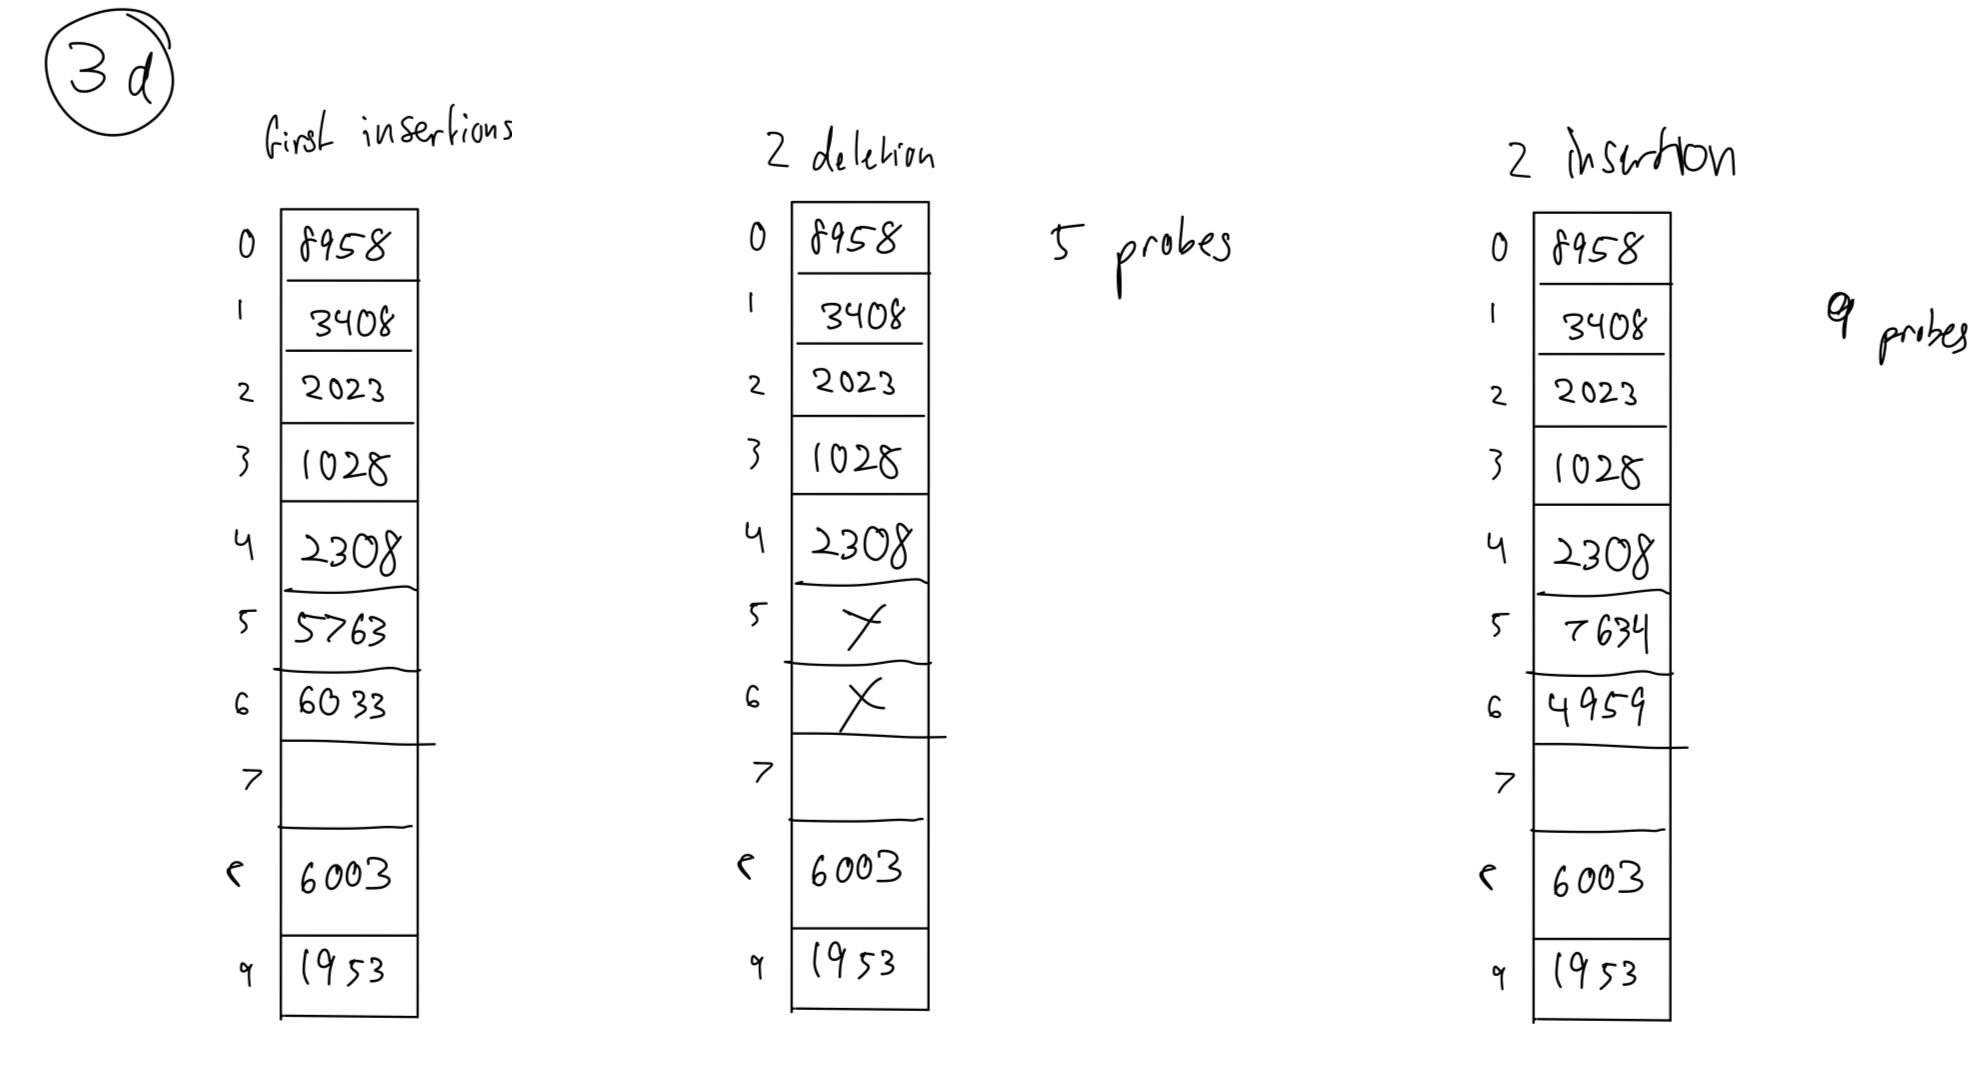 3d
first insertions
0 8958
1 3408
2 2023
3 1028
4 2308
5 5763
6 6033
7
8 6003
9 1953
2 deletion
0 8958
1 3408
2 2023
3 1028
4 2308
5 X
6 X
7
8 6003
9 1953
5 probes
2 insertion
0 8958
1 3408
2 2023
3 1028
4 2308
5 7634
6 4959
7
8 6003
9 1953
9 probes